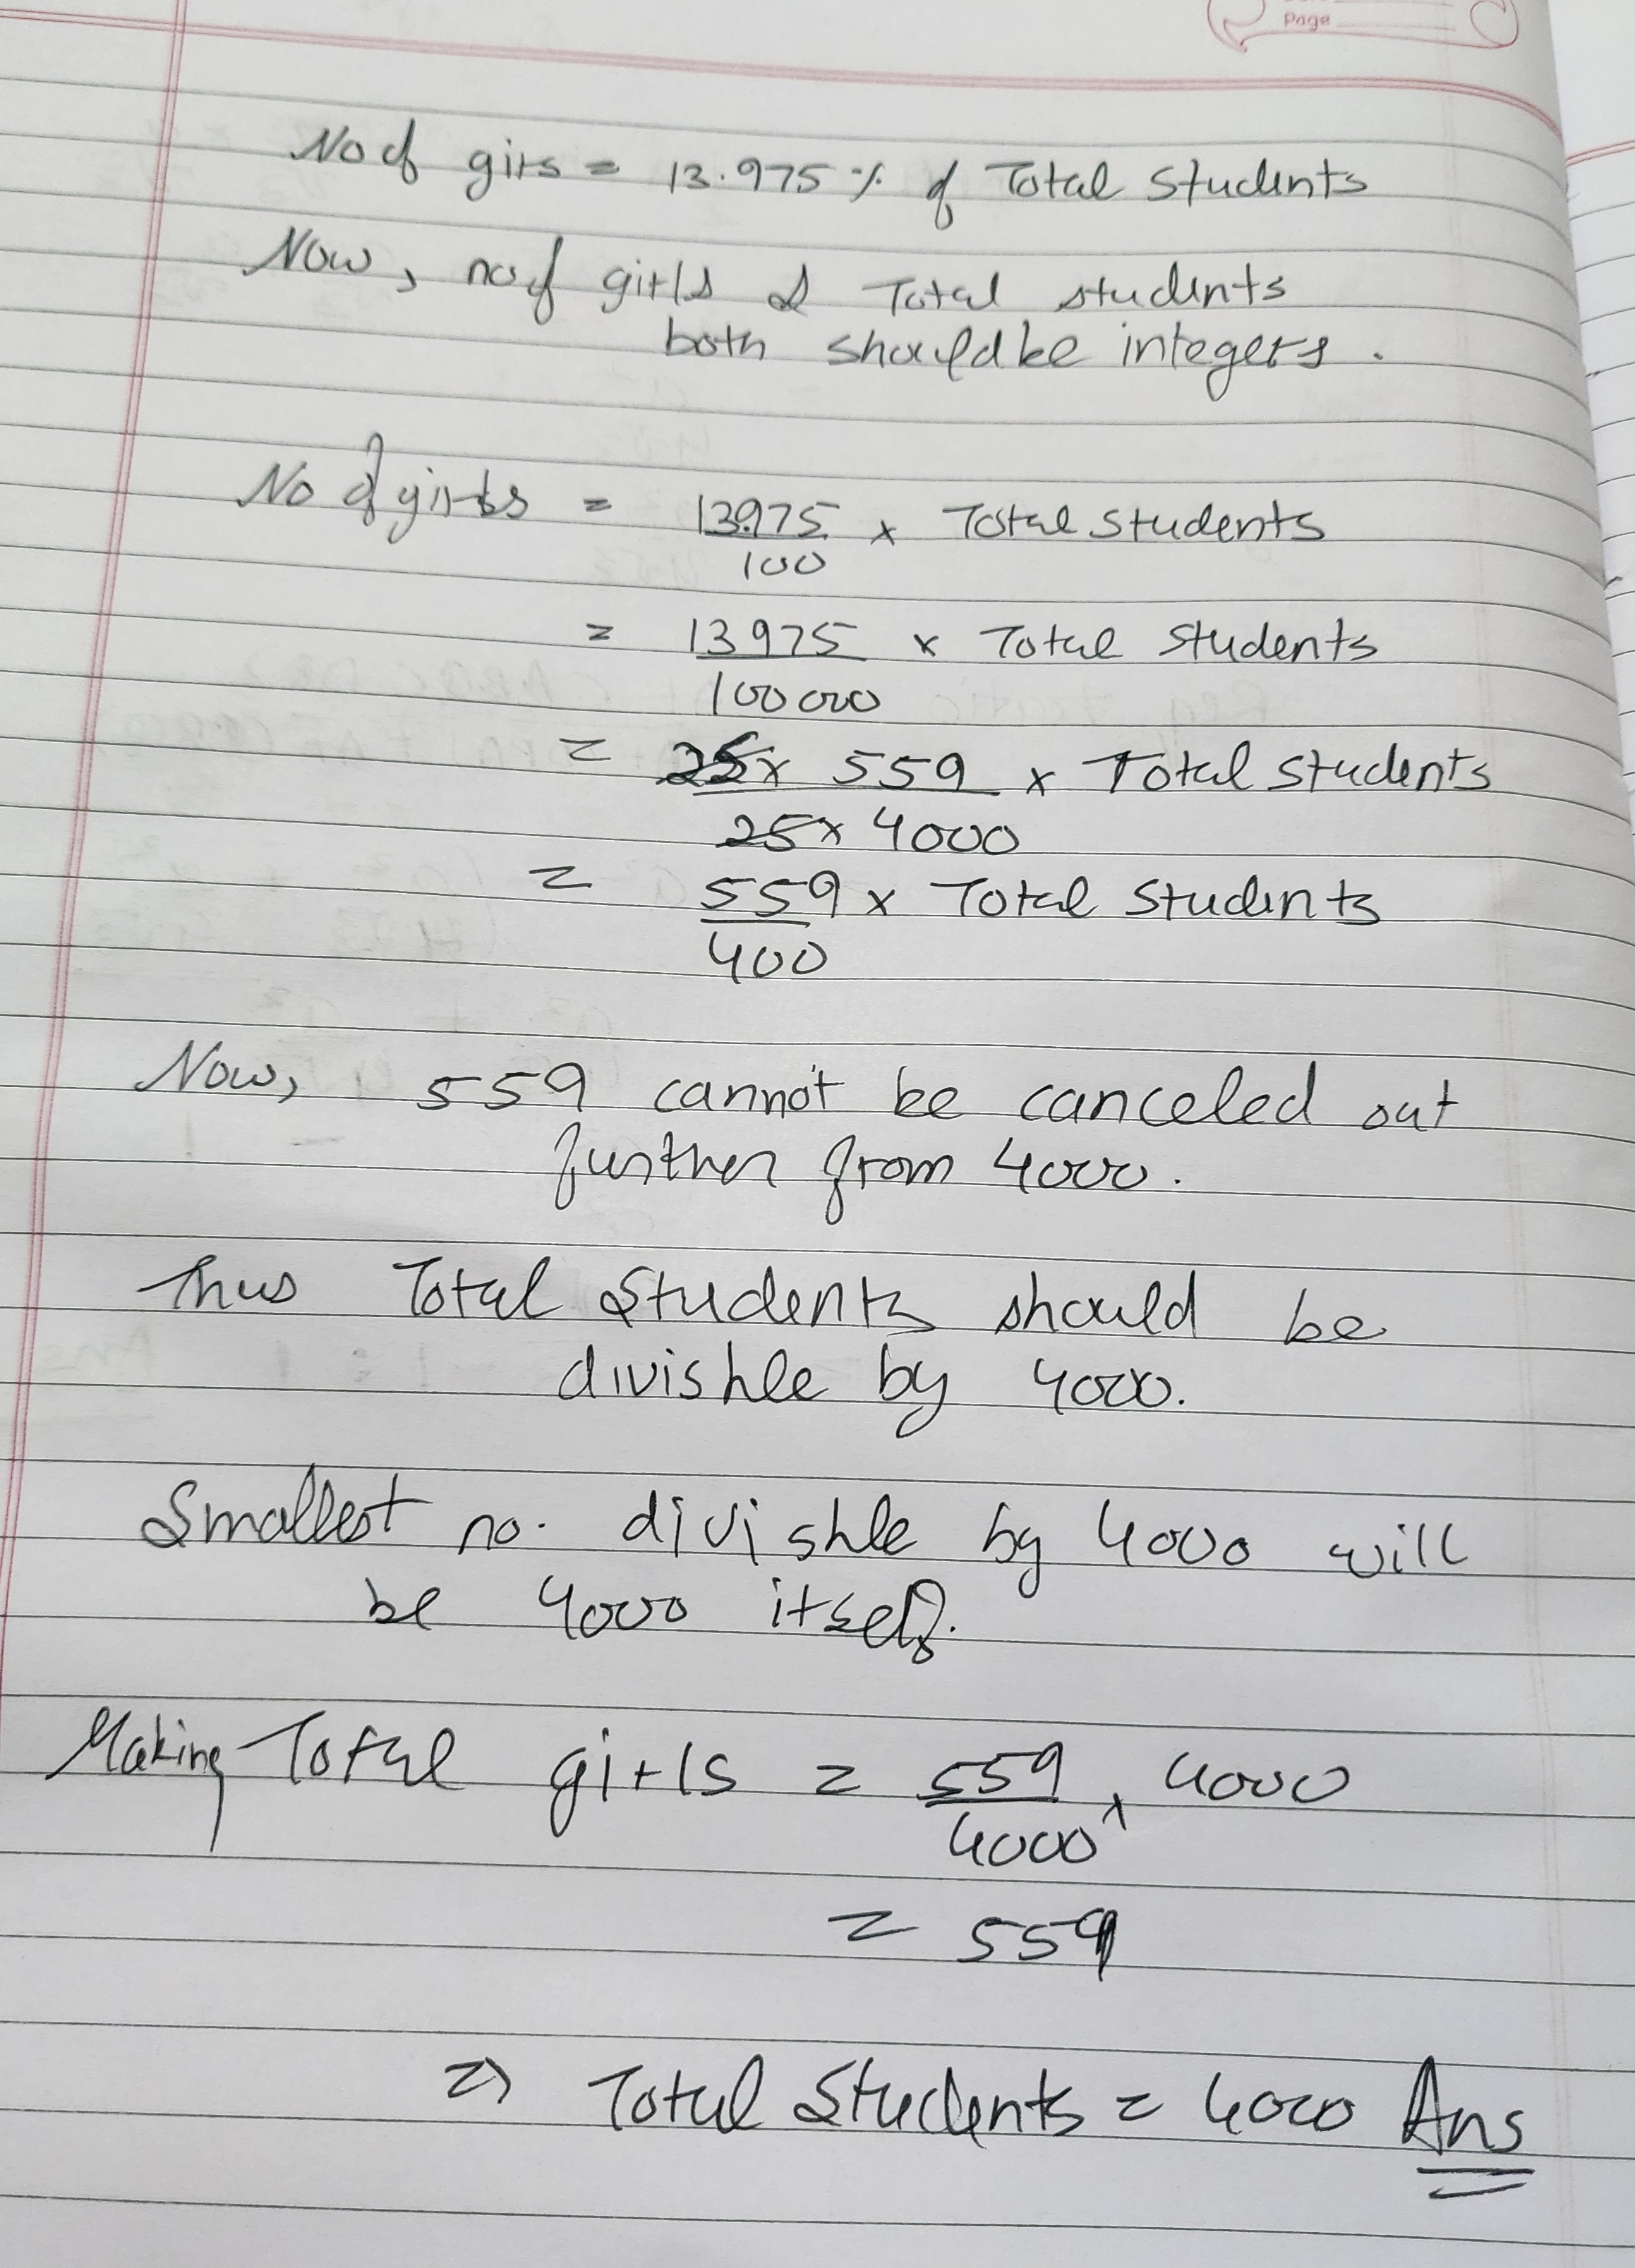 Page
No of girs = 13.975 % of Total students
Now, no of girls & Total students
both should be integers.
No of girls = 13.975/100 x Total students
= 13975/100000 x Total students
= 25x 559/25x 4000 x Total students
= 559/400 x Total students
Now, 559 cannot be canceled out
further from 4000.
Thus Total students should be
divisble by 4000.
Smallest no. divisble by 4000 will
be 4000 itself.
Making Total girls = 559/4000 x 4000
= 559
=> Total Students = 4000 Ans